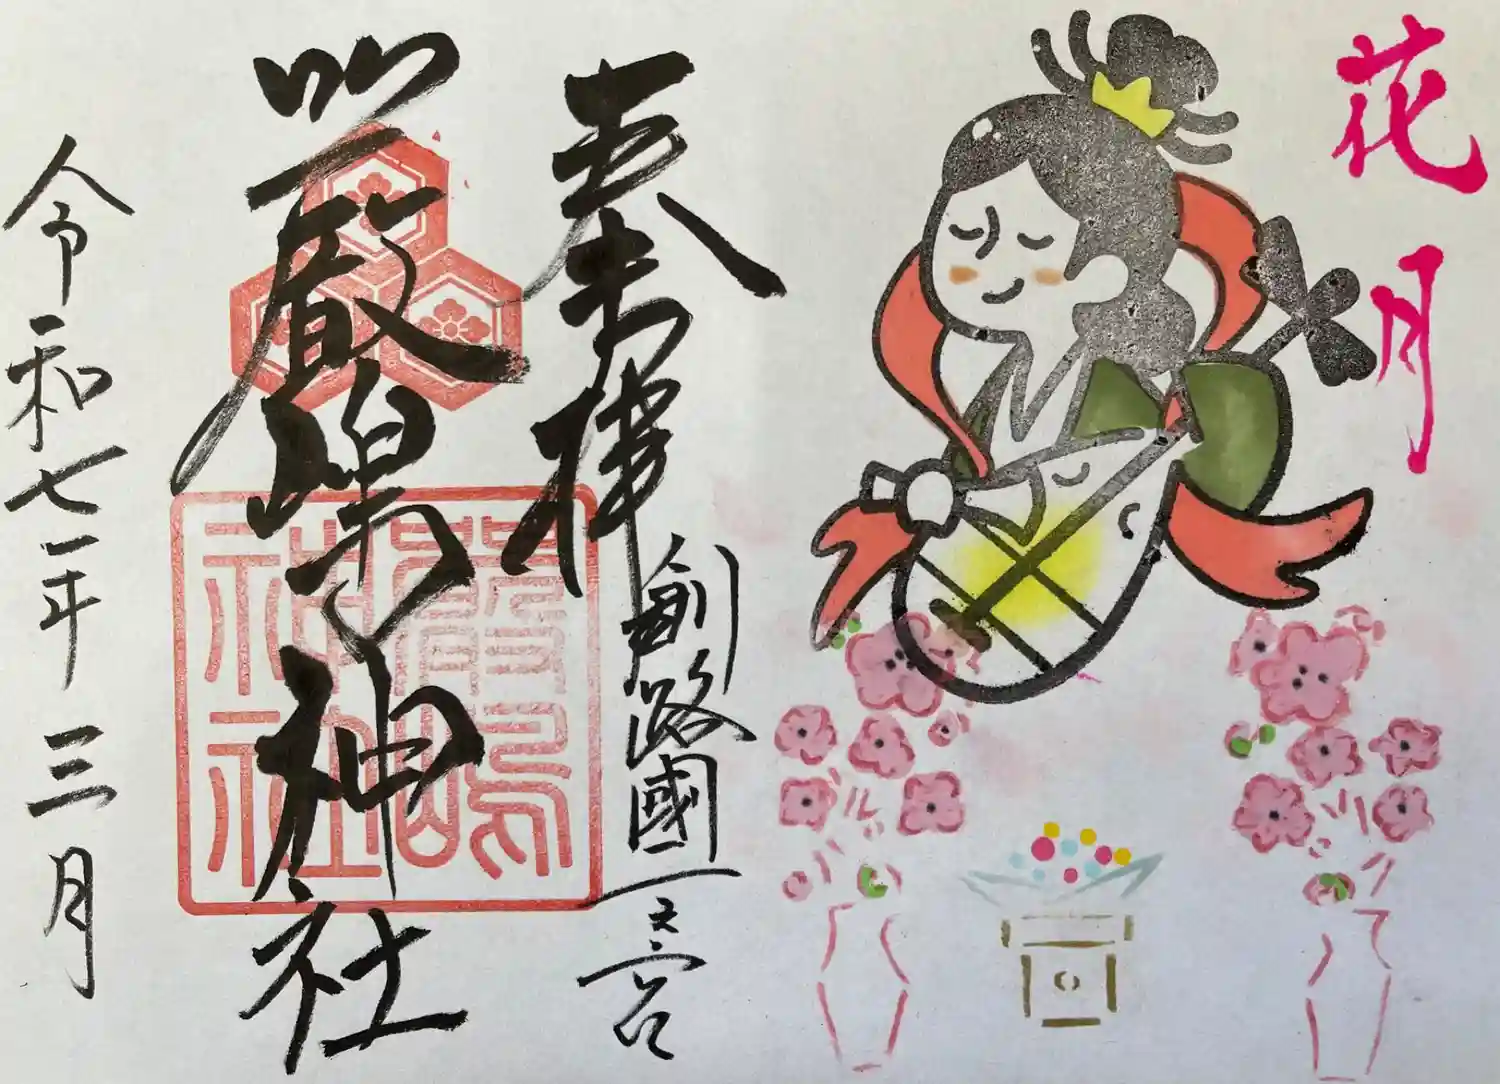 花月
奉拝
釧路國一之宮
嚴嶋神社
嚴嶋
神社
令和七年三月